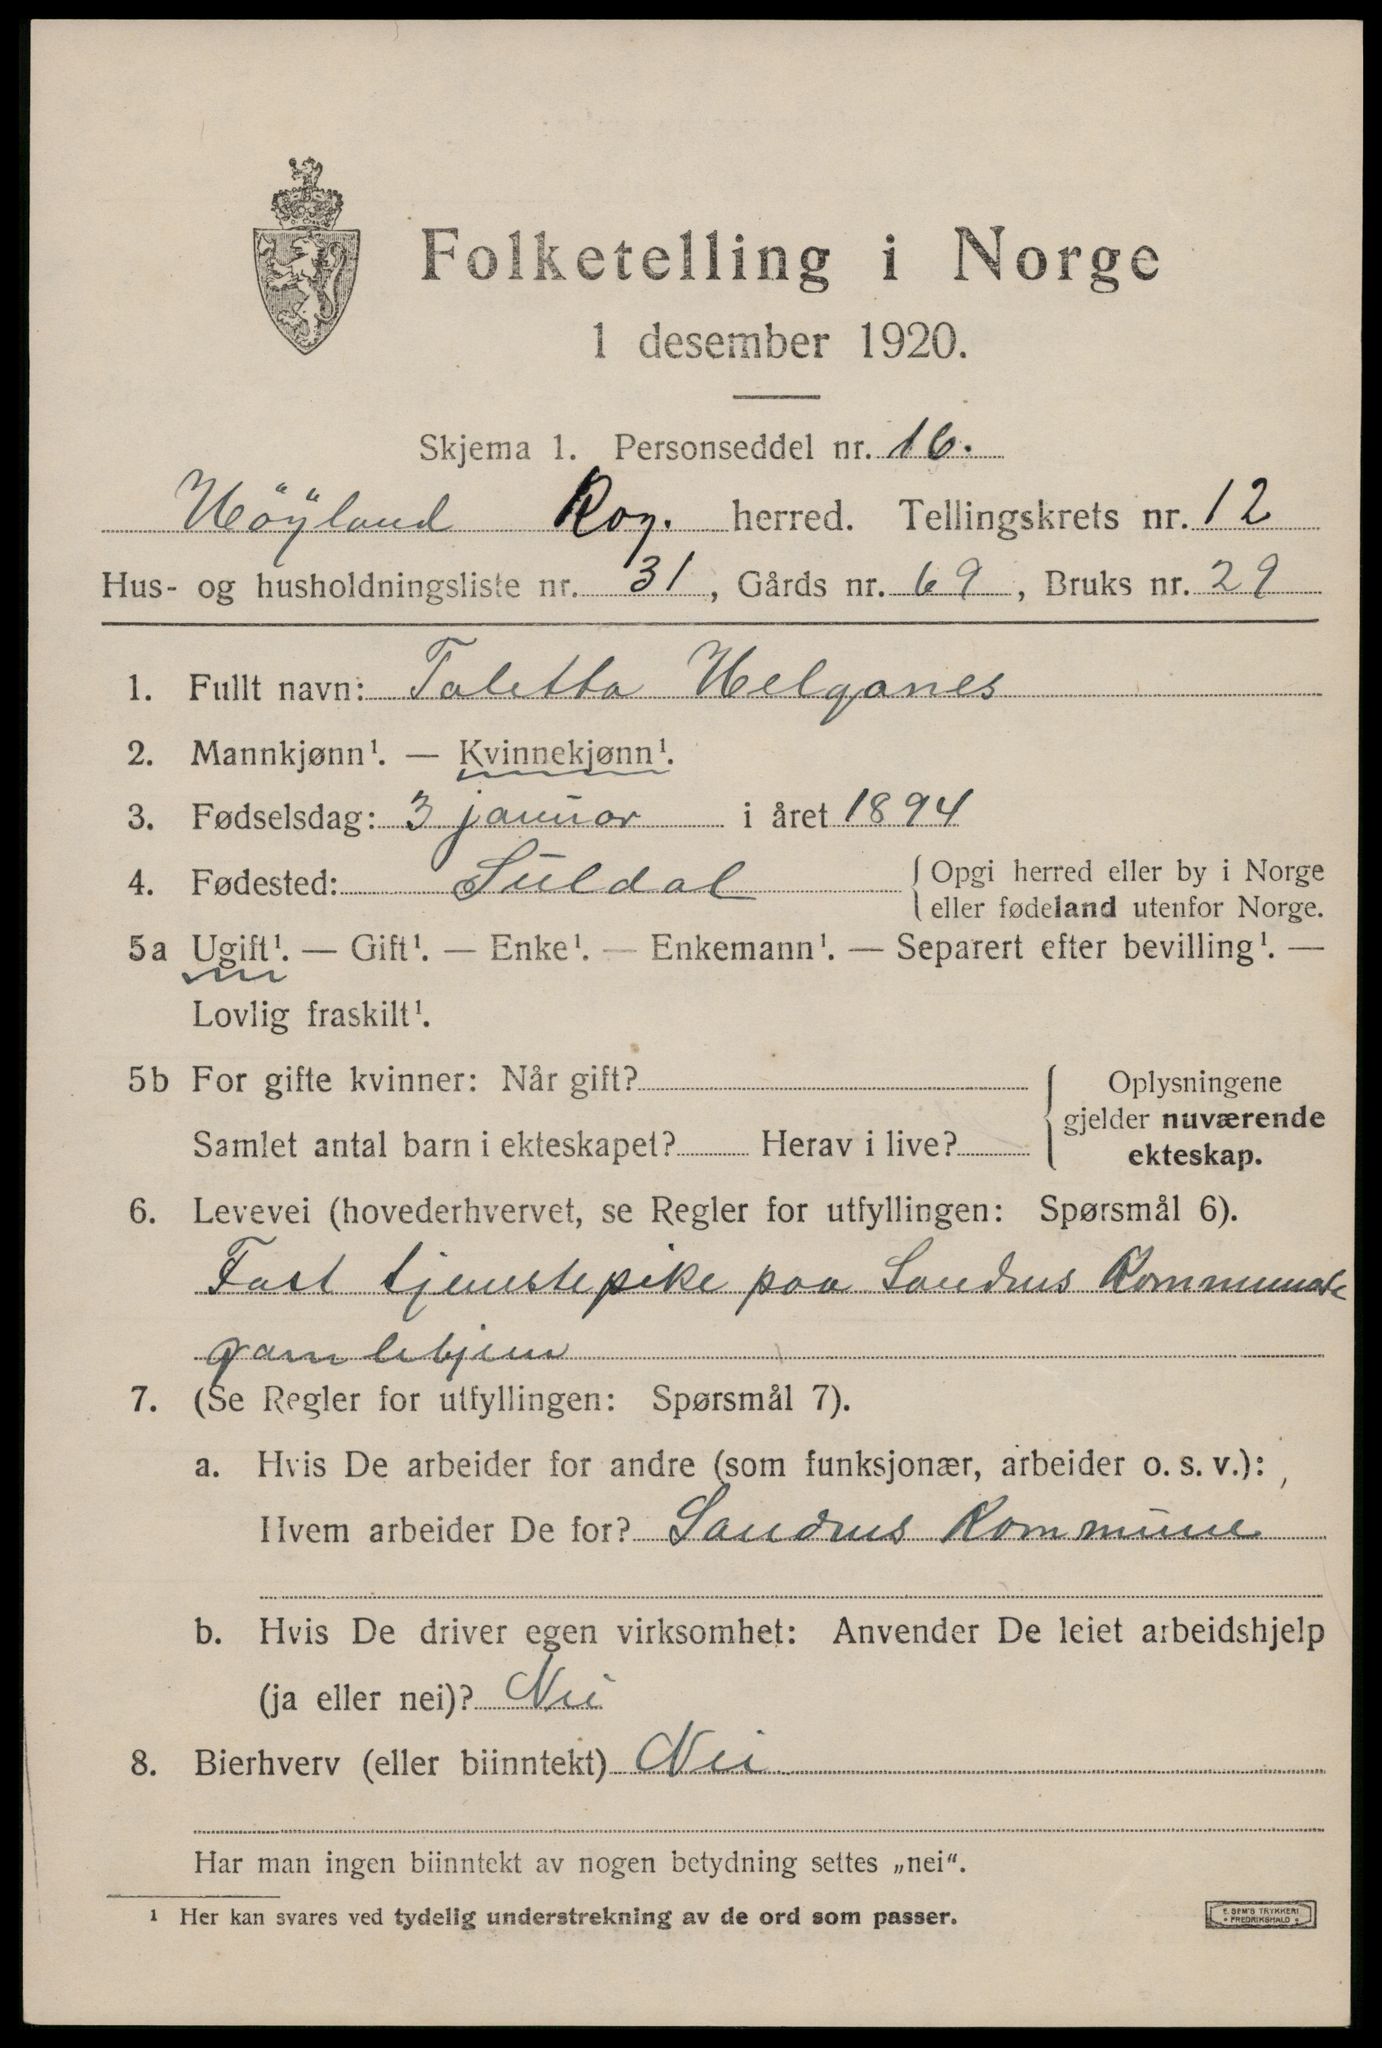 Folketelling i Norge
1 desember 1920.
Skjema 1. Personseddel nr. 16.
Höÿland Rog. herred. Tellingskrets nr. 12
Hus- og husholdningsliste nr. 31, Gårds nr. 69, Bruks nr. 29
1. Fullt navn: Taletta Helganes
2. Mannkjønn¹. — Kvinnekjønn¹.
3. Fødselsdag: 3 januar i året 1894
4. Fødested: Suldal { Opgi herred eller by i Norge
eller fødeland utenfor Norge.
5a Ugift¹. — Gift¹. — Enke¹. — Enkemann¹. — Separert efter bevilling¹. —
Lovlig fraskilt¹.
5b For gifte kvinner: Når gift? { Oplysningene
gjelder nuværende
Samlet antal barn i ekteskapet? Herav i live? ekteskap.
6. Levevei (hovederhvervet, se Regler for utfyllingen: Spørsmål 6).
Fast tjenstepike paa Sandnes Kommunale
gamlehjem
7. (Se Regler for utfyllingen: Spørsmål 7).
a. Hvis De arbeider for andre (som funksjonær, arbeider o. s. v.):
Hvem arbeider De for? Sandnes Kommune
b. Hvis De driver egen virksomhet: Anvender De leiet arbeidshjelp
(ja eller nei)? Nei
8. Bierhverv (eller biinntekt) Nei
Har man ingen biinntekt av nogen betydning settes „nei“.
¹ Her kan svares ved tydelig understrekning av de ord som passer.
E. SEM'S TRYKKERI
FREDRIKSHALD